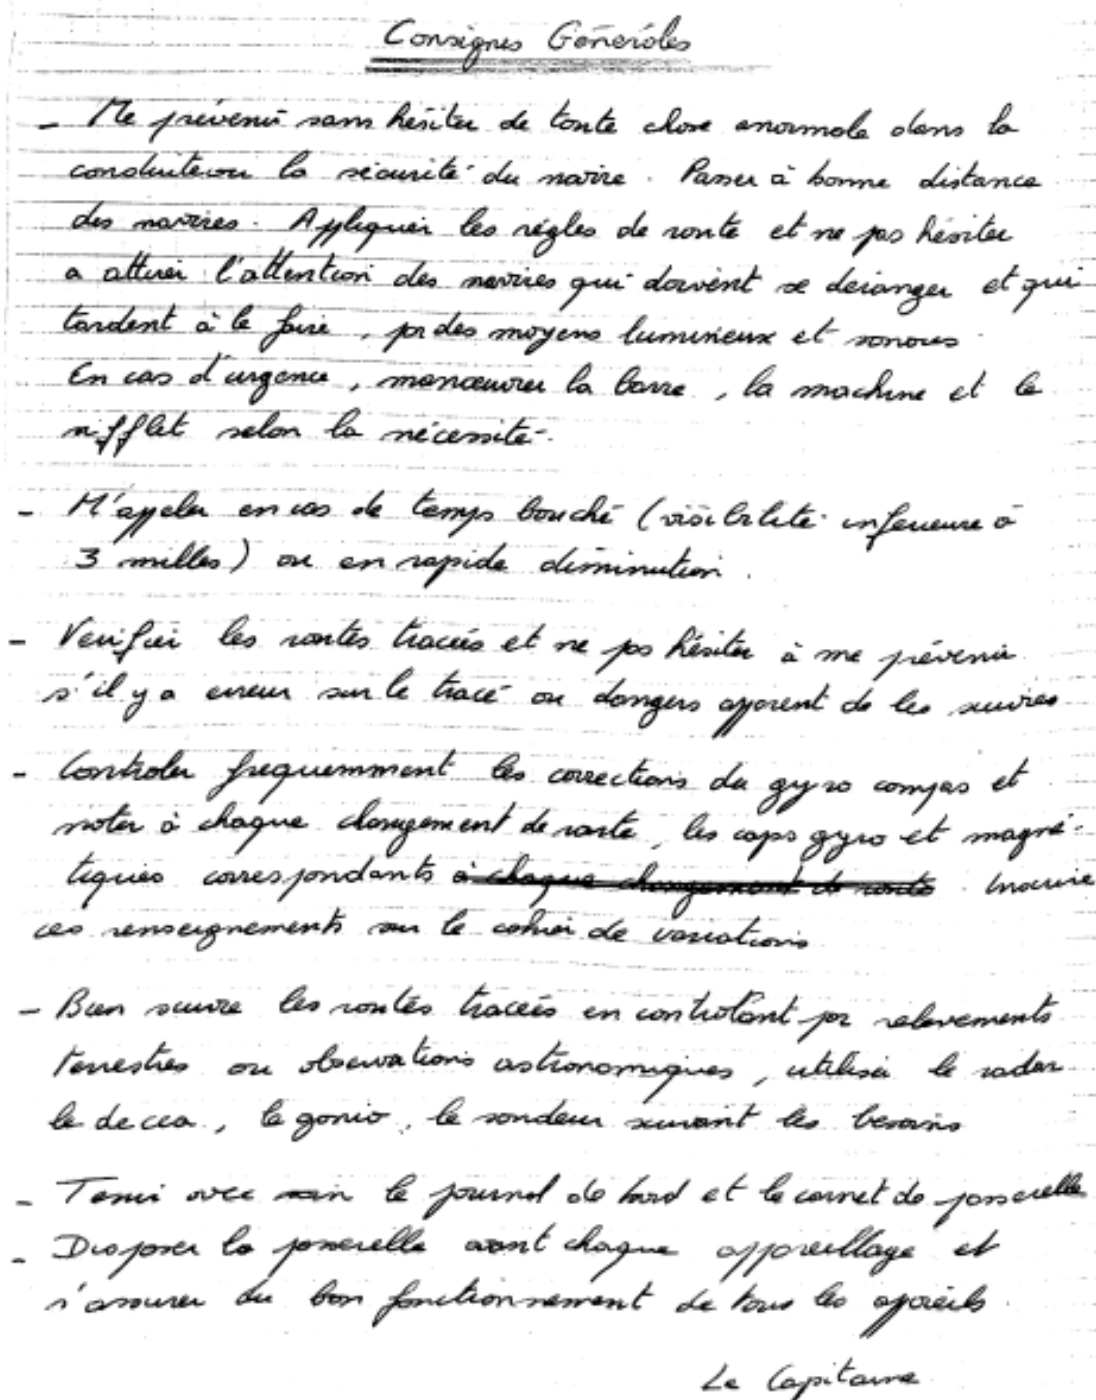 Consignes Générales
- Me prévenir sans hésiter de toute chose anormale dans la
conduite ou la sécurité du navire. Passer à bonne distance
des navires. Appliquer les règles de route et ne pas hésiter
a attirer l'attention des navires qui doivent se déranger et qui
tardent à le faire, par des moyens lumineux et sonores.
En cas d'urgence, manœuvrer la barre, la machine et le
sifflet selon la nécessité.
- M'appeler en cas de temps bouché (visibilité inférieure à
3 milles) ou en rapide diminution.
- Vérifier les routes tracées et ne pas hésiter à me prévenir
s'il y a erreur sur le tracé ou dangers apparent de les suivres
- Controler frequemment les corrections du gyro compas et
noter à chaque changement de route, les caps gyro et magné-
tiques correspondants à chaque changement de route. Inscrire
ces renseignements sur le cahier de variations
- Bien suivre les routes tracées en controlant par relevements
terrestres ou observations astronomiques, utiliser le radar
le decca, le gonio, le sondeur suivant les besoins
- Tenir avec soin le journal de bord et le carnet de passerelle
- Disposer la passerelle avant chaque appareillage et
s'assurer du bon fonctionnement de tous les appareils.
Le Capitaine